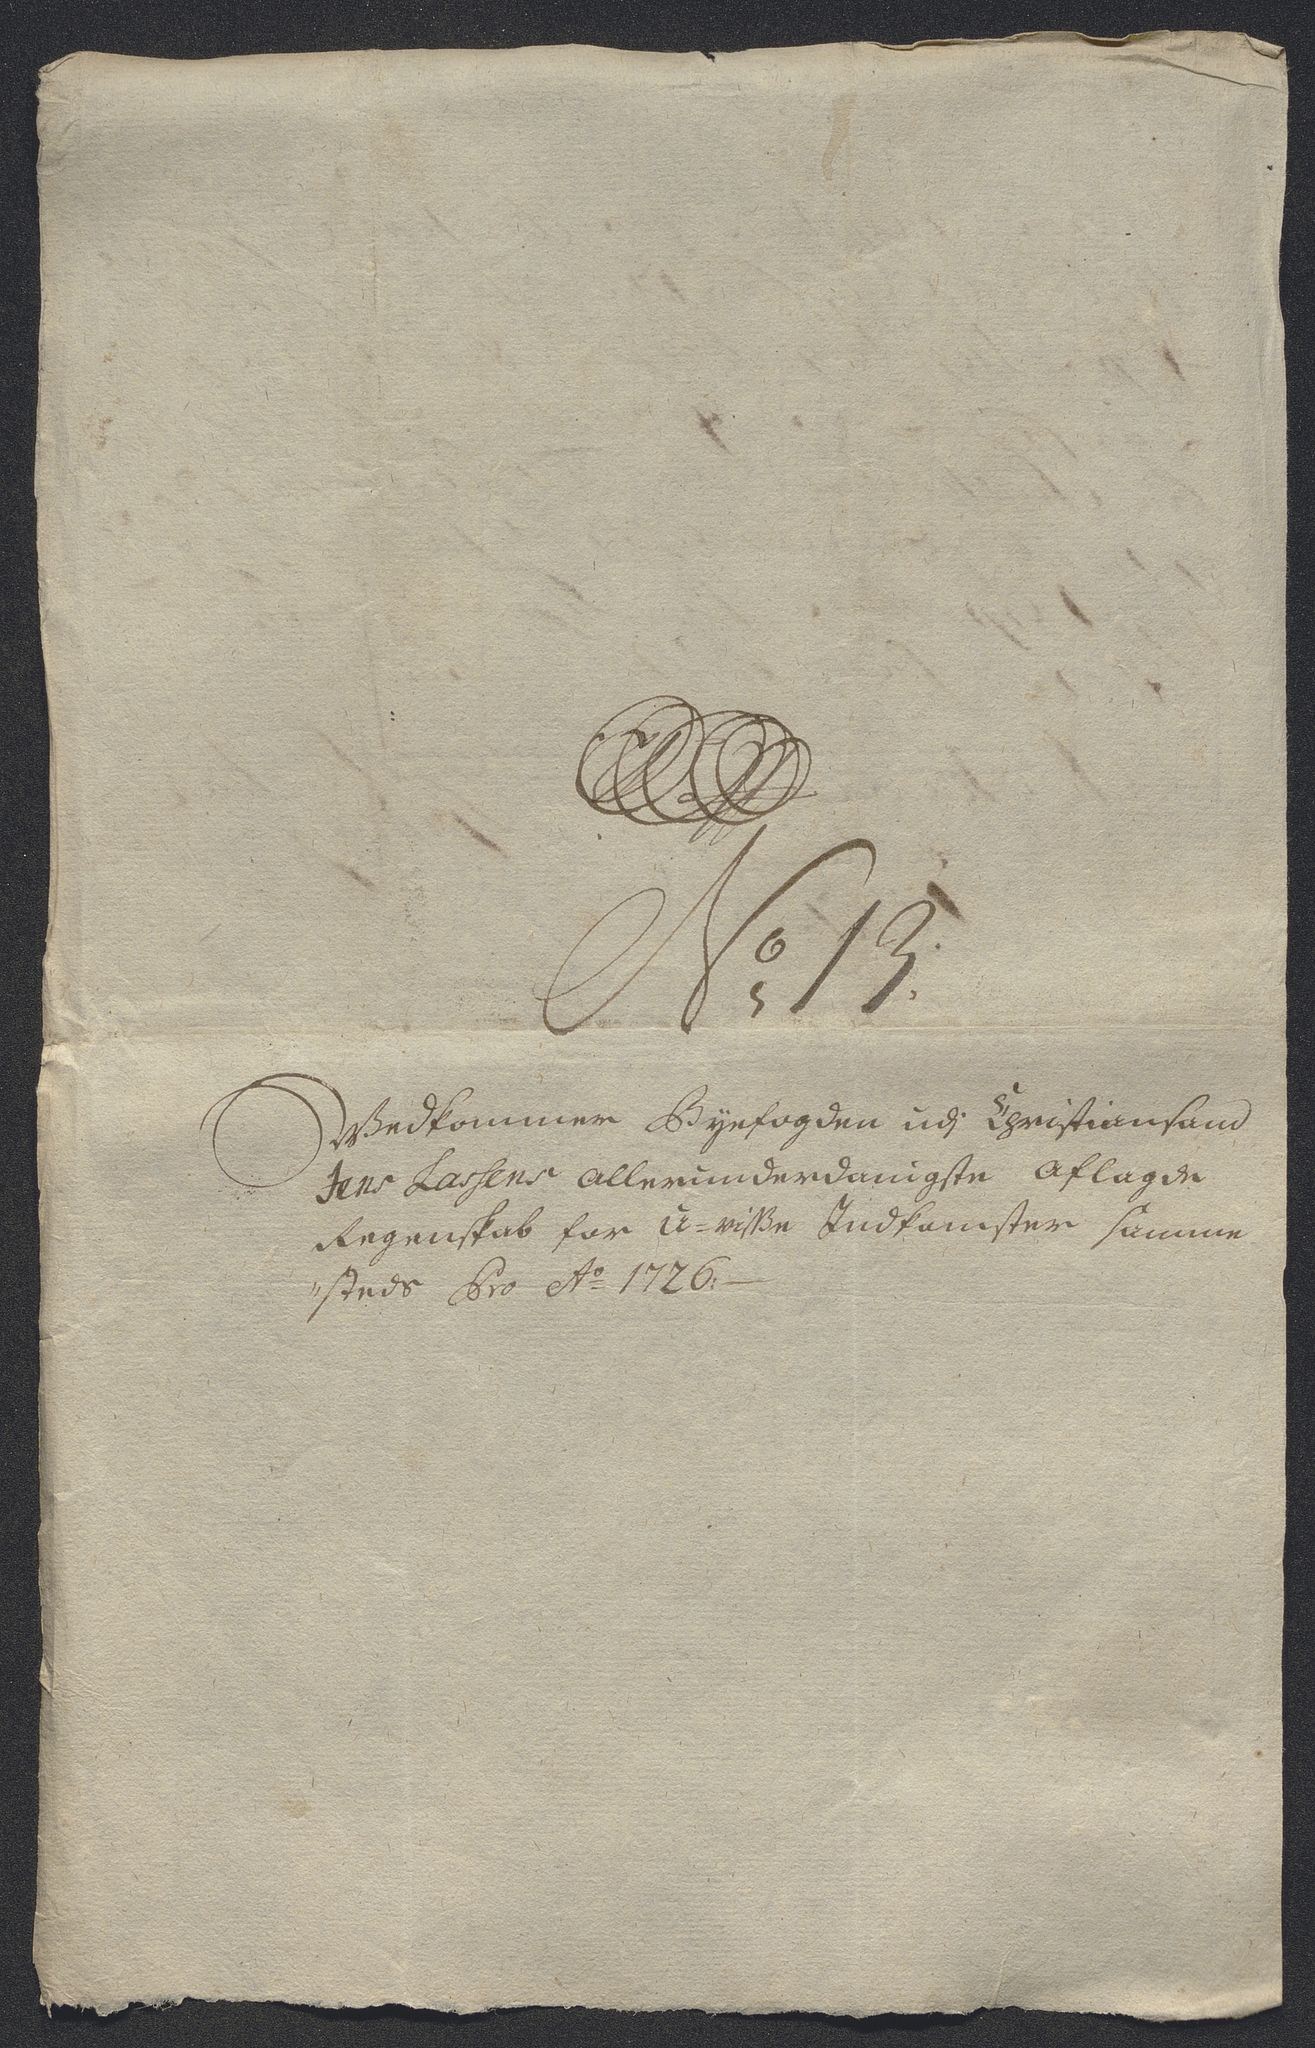 No 13.
Wedkommer Byefogden udj Christiansand
Jens Lassens allerunderdanigste aflagde
Regenskab for u=visse Indkomster samme
"steds Pro Ao 1726.